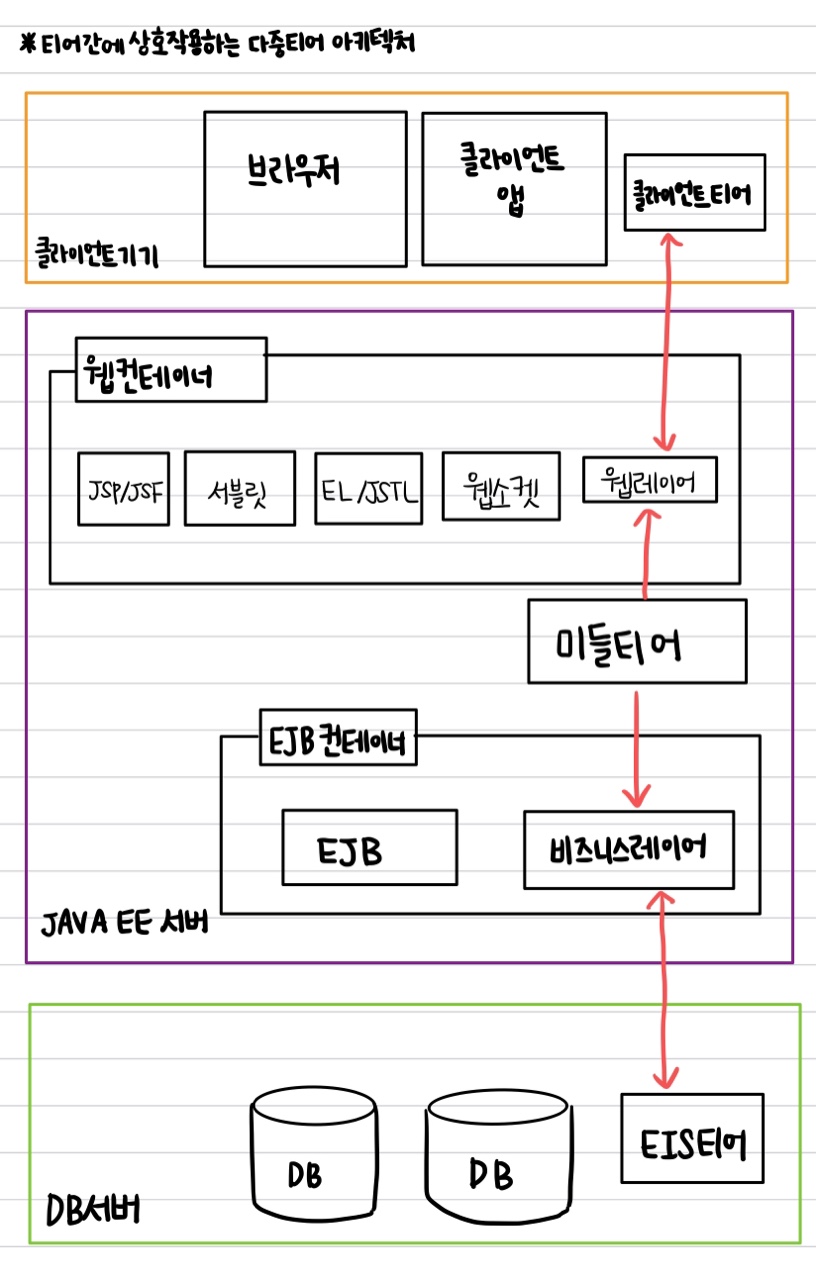 * 티어간에 상호작용하는 다중티어 아키텍처
브라우저
클라이언트
앱
클라이언트티어
클라이언트기기
웹컨테이너
JSP/JSF
서블릿
EL/JSTL
웹소켓
웹레이어
미들티어
EJB컨테이너
EJB
비즈니스레이어
JAVA EE 서버
DB
DB
EIS티어
DB서버